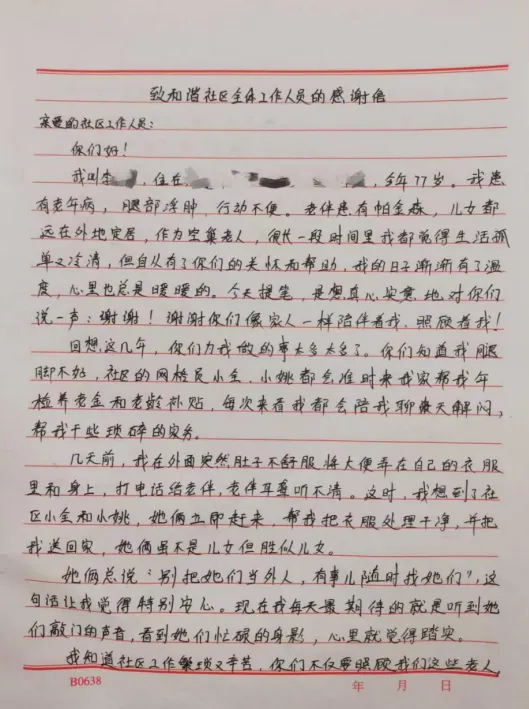 致和谐社区全体工作人员的感谢信
亲爱的社区工作人员：
你们好！
我叫李，住在，今年77岁。我患
有老年病，腿部浮肿，行动不便。老伴患有帕金森，儿女都
远在外地定居，作为空巢老人，很长一段时间里我都觉得生活孤
单又冷清，但自从有了你们的关怀和帮助，我的日子渐渐有了温
度，心里也总是暖暖的。今天提笔，是想真心实意地对你们
说一声：谢谢！谢谢你们像家人一样陪伴着我、照顾着我！
回想这几年，你们为我做的事太多太多了。你们知道我腿
脚不好，社区的网格员小全、小姚都会准时来我家帮我年
检养老金和老龄补贴，每次来看我都会陪我聊聊天解闷，
帮我干些琐碎的家务。
几天前，我在外面突然肚子不舒服将大便弄在自己的衣服
里和身上，打电话给老伴，老伴耳聋听不清。这时，我想到了社
区小全和小姚，她俩立即赶来，帮我把衣服处理干净，并把
我送回家，她俩虽不是儿女但胜似儿女。
她俩总说“别把她们当外人，有事儿随时找她们”，这
句话让我觉得特别安心。现在我每天最期待的就是听到她
们敲门的声音，看到她们忙碌的身影，心里就觉得踏实。
我知道社区工作繁琐又辛苦，你们不仅要照顾我们这些老人
B0638 年 月 日